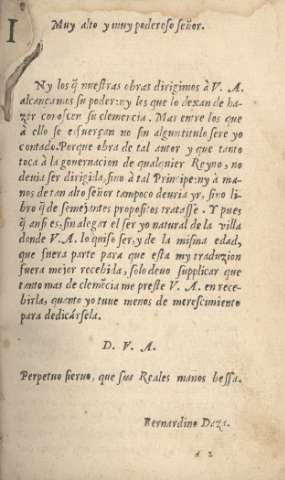 Muy alto y muy poderoso señor.
Ny los q̃ nuestras obras dirigimos à V. A.
alcançamos su poder: ny les que lo dexan de ha-
zer conoscen su clemencia. Mas entre los que
à ello se esfuerçan no sin algun titulo sere yo
contado. Porque obra de tal autor y que tanto
toca à la governacion de qualquier Reyno, no
devia ser dirigida, sino à tal Principe: ny à ma-
nos de tan alto señor tampoco devria yr, sino li-
bro q̃ de semejantes propositos tratasse. Y pues
q̃ ansi es, sin alegar el ser yo natural de la villa
donde V. A. lo quiso ser, y de la misma edad,
que fuera parte para que esta my traduzion
fuera mejor recebida, solo devo supplicar que
tanto mas de clemẽcia me preste V. A. en rece-
birla, quanto yo tuve menos de merescimiento
para dedicársela.
D. V. A.
Perpetuo siervo, que sus Reales manos bessa.
Bernardino Daza.
A 2